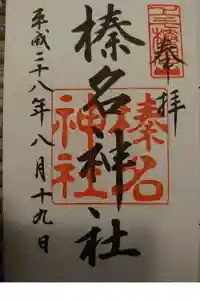 奉拝
榛名神社
榛名神社
平成二十八年八月十九日